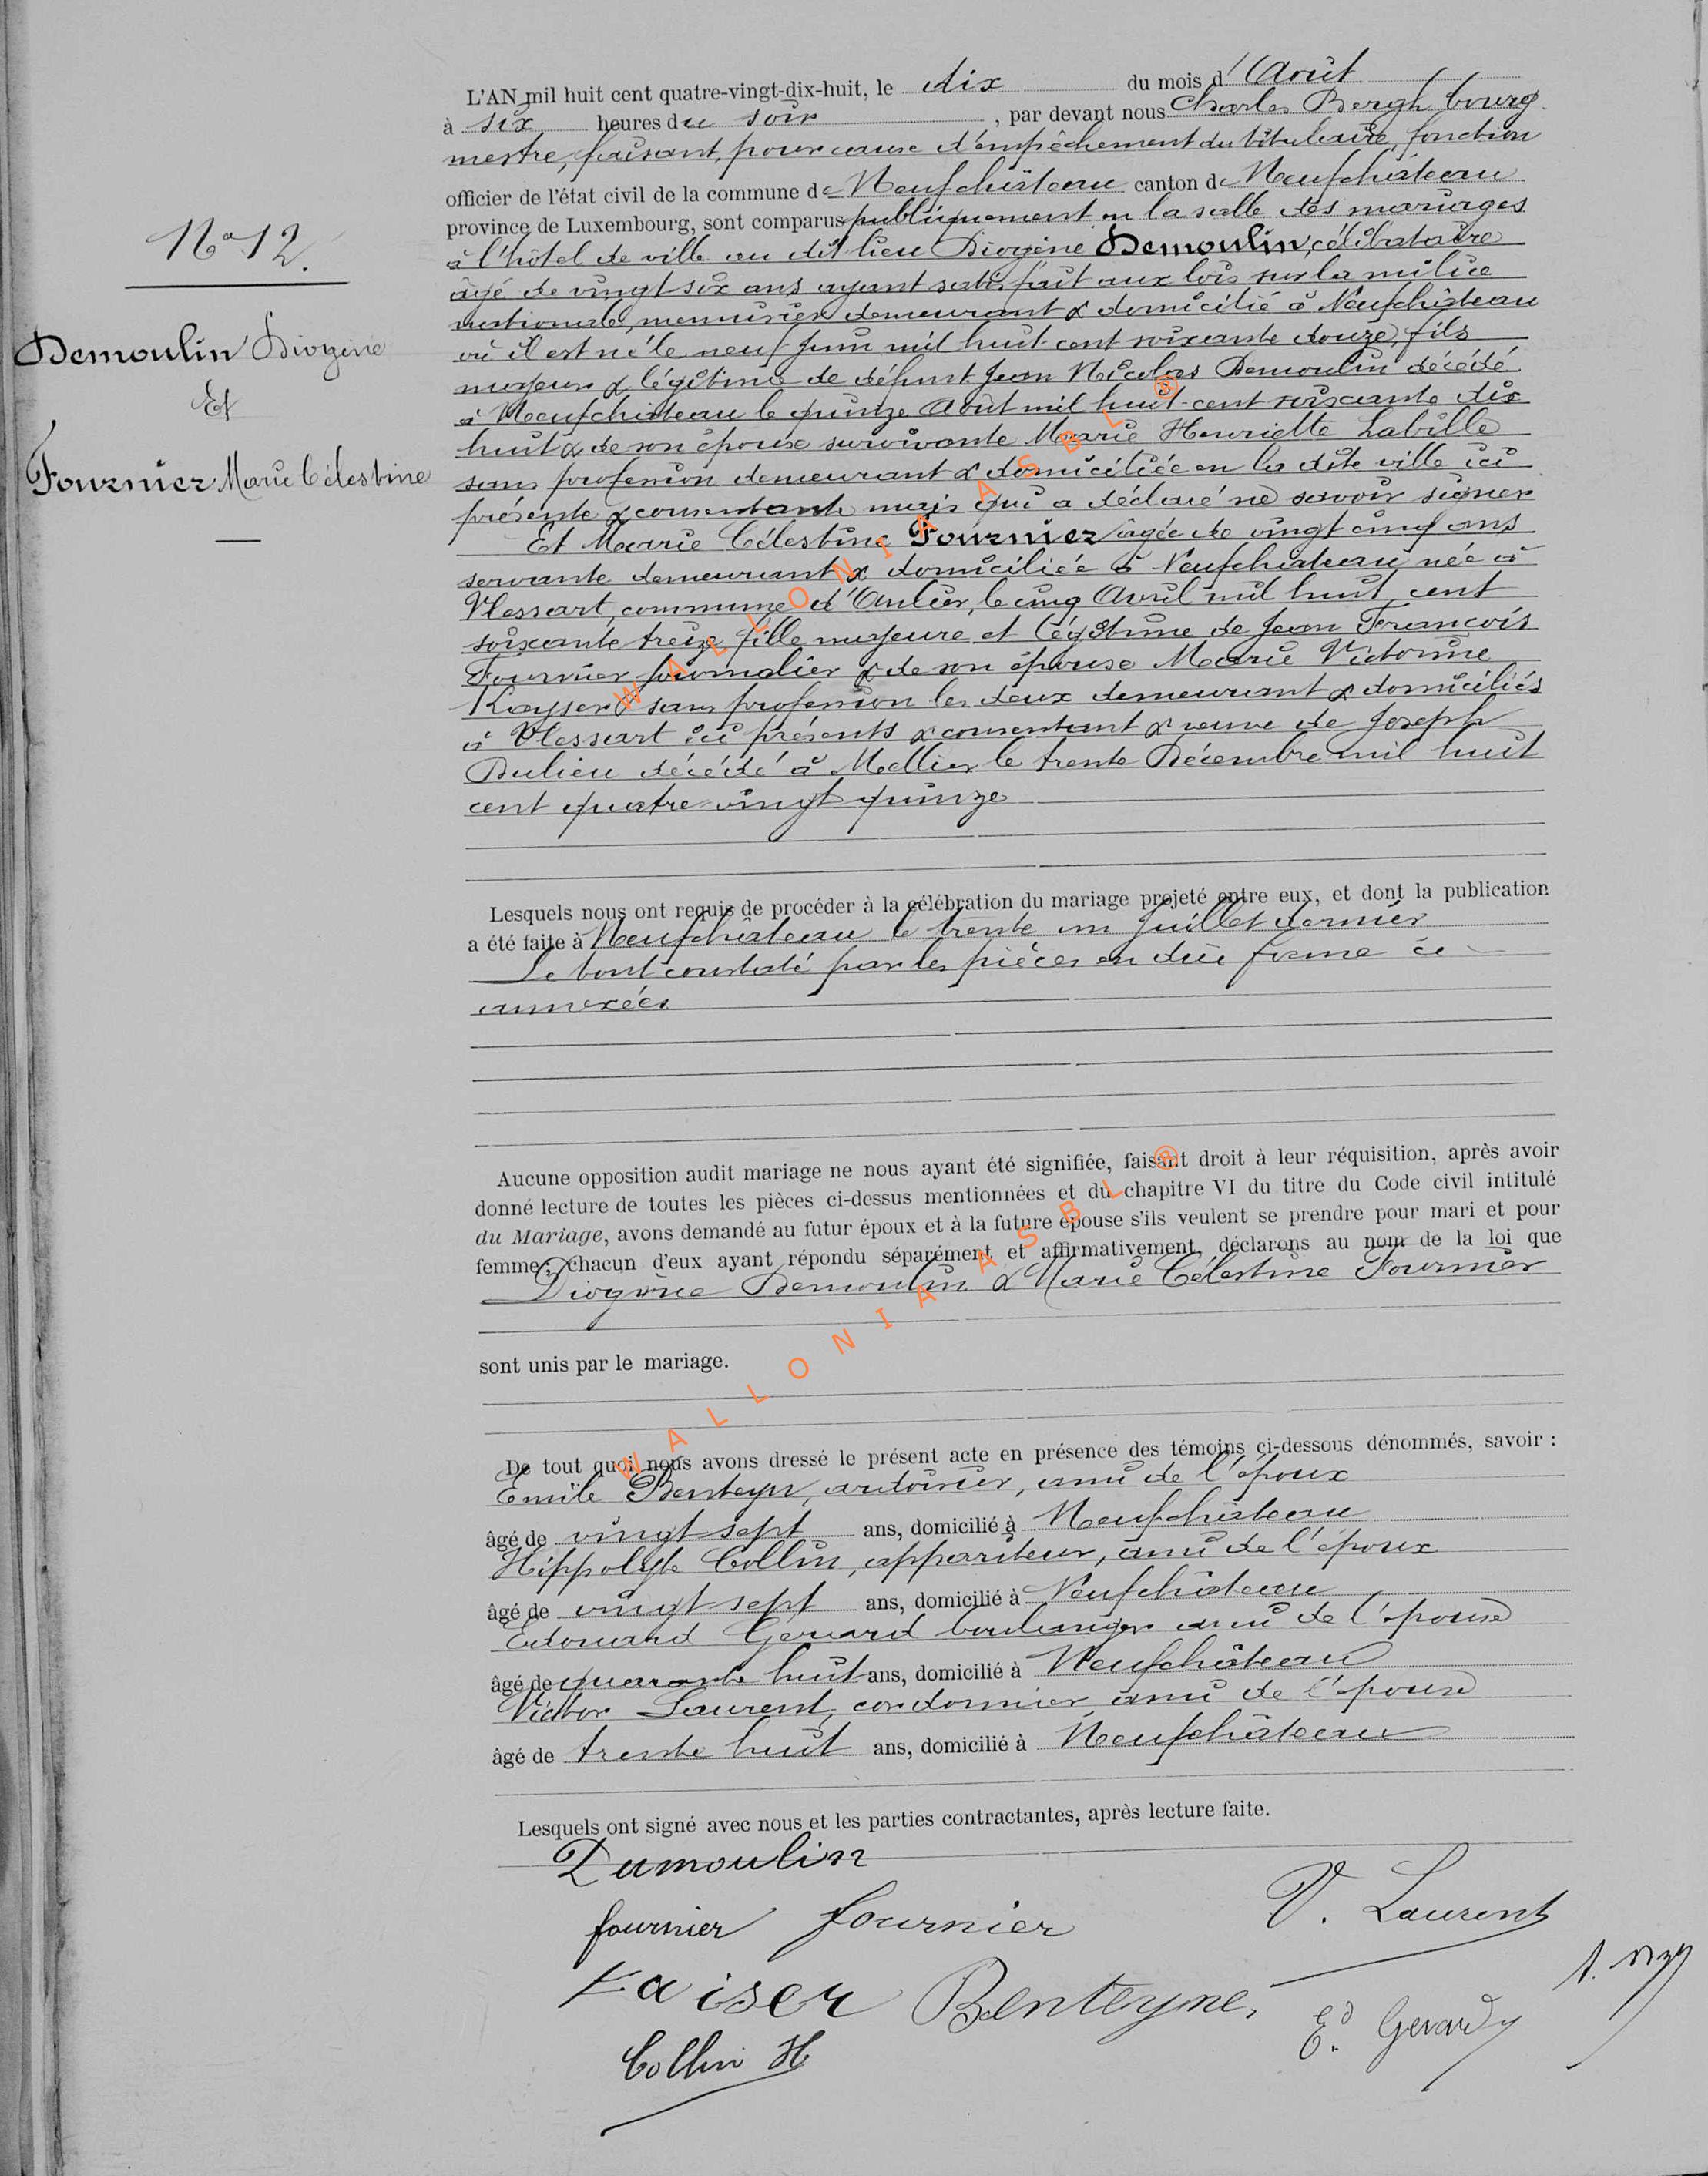 L'AN mil huit cent quatre-vingt-dix-huit, le dix du mois d'Août
à six heures du soir, par devant nous Charles Bergh bourg
mestre, faisant, pour cause d'empêchement du titulaire, fonction
officier de l'état civil de la commune de Neufchâteau canton de Neufchâteau
province de Luxembourg, sont comparus publiquement en la salle des mariages
à l'hôtel de ville au dit lieu Diogène Demoulin, célibataire
âgé de vingt six ans ayant satisfait aux lois sur la milice
nationale, menuisier demeurant & domicilié à Neufchâteau
où il est né le neuf Juin mil huit cent soixante douze, fils
majeur & légitime de défunt Jean Nicolas Demoulin décédé
à Neufchâteau le quinze Août mil huit cent soixante dix
huit & de son épouse survivante Marie Henriette Labille
sans profession demeurant & domiciliée en la dite ville ici
présente & consentante mais qui a déclaré ne savoir signer
Et Marie Célestine Fournier âgée de vingt cinq ans
servante demeurant & domiciliée à Neufchâteau née à
Vlessart, commune d'Anlier, le cinq Avril mil huit cent
soixante treize fille majeure et légitime de Jean François
Fournier journalier & de son épouse Marie Victorine
Kayser sans profession les deux demeurant & domiciliés
à Vlessart ici présents & consentant & veuve de Joseph
Dulieu décédé à Mellier le trente Décembre mil huit
cent quatre-vingt quinze
N° 12.
Demoulin Diogène
Et
Fournier Marie Célestine
Lesquels nous ont requis de procéder à la célébration du mariage projeté entre eux, et dont la publication
a été faite à Neufchâteau le trente un Juillet dernier
Le tout constaté par les pièces en due forme ci
annexées
Aucune opposition audit mariage ne nous ayant été signifiée, faisant droit à leur réquisition, après avoir
donné lecture de toutes les pièces ci-dessus mentionnées et du chapitre VI du titre du Code civil intitulé
du Mariage, avons demandé au futur époux et à la future épouse s'ils veulent se prendre pour mari et pour
femme; chacun d'eux ayant répondu séparément et affirmativement, déclarons au nom de la loi que
Diogène Demoulin & Marie Célestine Fournier
sont unis par le mariage.
De tout quoi nous avons dressé le présent acte en présence des témoins ci-dessous dénommés, savoir :
Emile Benteyn, ardoisier, ami de l'époux
âgé de vingt sept ans, domicilié à Neufchâteau
Hippolyte Collin, appariteur, ami de l'époux
âgé de vingt sept ans, domicilié à Neufchâteau
Edouard Gérard boulanger ami de l'épouse
âgé de quarante huit ans, domicilié à Neufchâteau
Victor Laurent, cordonnier ami de l'épouse
âgé de trente huit ans, domicilié à Neufchâteau
Lesquels ont signé avec nous et les parties contractantes, après lecture faite.
Dumoulin
fournier fournier V. Laurent
Kaiser Benteyne,
Ed. Gerard
Collin H
WALLONIA ASBL ®
WALLONIA ASBL ®